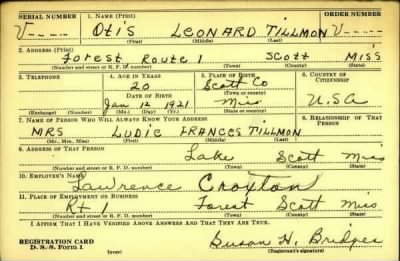 SERIAL NUMBER 1. NAME (Print) ORDER NUMBER
V---- OTIS LEONARD TILLMON V----
(First) (Middle) (Last)
2. ADDRESS (Print)
Forest Route 1 SCOTT MISS
(Number and street or R. F. D. number) (Town) (County) (State)
3. TELEPHONE 4. AGE IN YEARS 5. PLACE OF BIRTH 6. COUNTRY OF CITIZENSHIP
20 Scott Co
DATE OF BIRTH (Town or county)
Jan 12 1921 Miss U.S.A
(Exchange) (Number) (Mo.) (Day) (Yr.) (State or country)
7. NAME OF PERSON WHO WILL ALWAYS KNOW YOUR ADDRESS 8. RELATIONSHIP OF THAT PERSON
MRS LUDIE FRANCES TILLMON
(Mr., Mrs., Miss) (First) (Middle) (Last)
9. ADDRESS OF THAT PERSON
Lake Scott Miss
(Number and street or R. F. D. number) (Town) (County) (State)
10. EMPLOYER'S NAME
Lawrence Croxton
11. PLACE OF EMPLOYMENT OR BUSINESS
Rt 1 Forest Scott Miss
(Number and street or R. F. D. number) (Town) (County) (State)
I AFFIRM THAT I HAVE VERIFIED ABOVE ANSWERS AND THAT THEY ARE TRUE.
REGISTRATION CARD
D. S. S. Form 1 (over) Susan H. Bridges
(Registrant's signature)